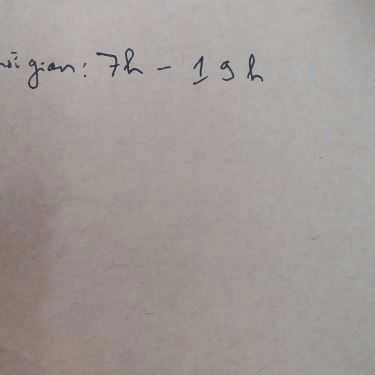 gian: 7h - 19h